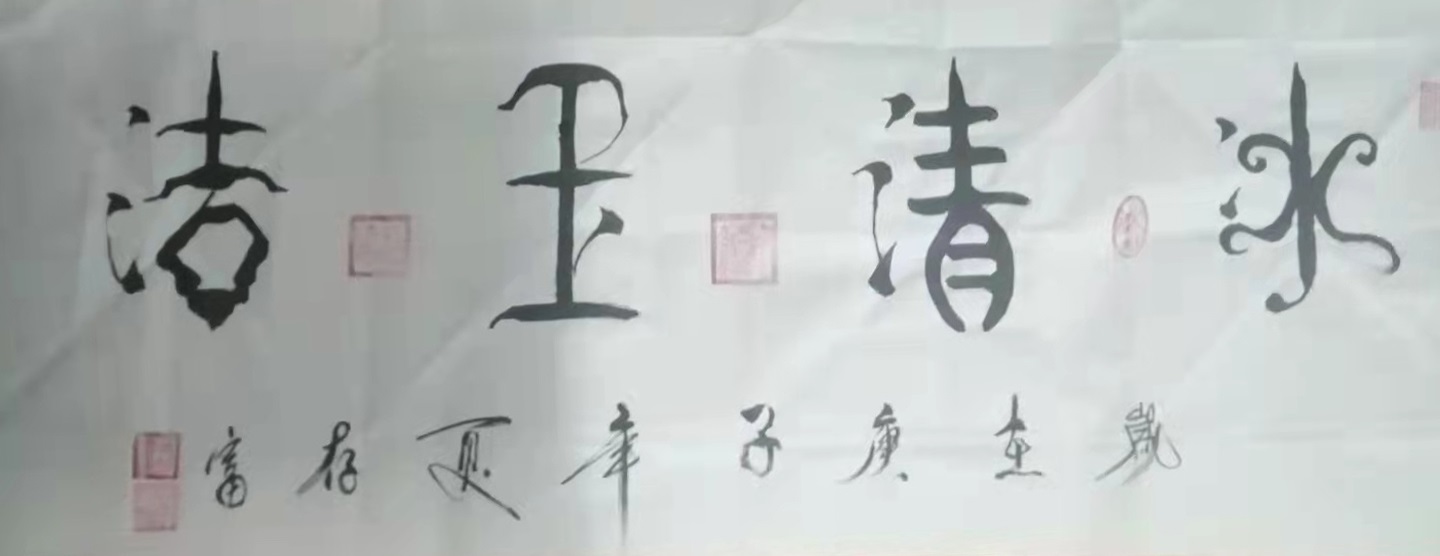 冰清玉洁
岁在庚子年夏存富